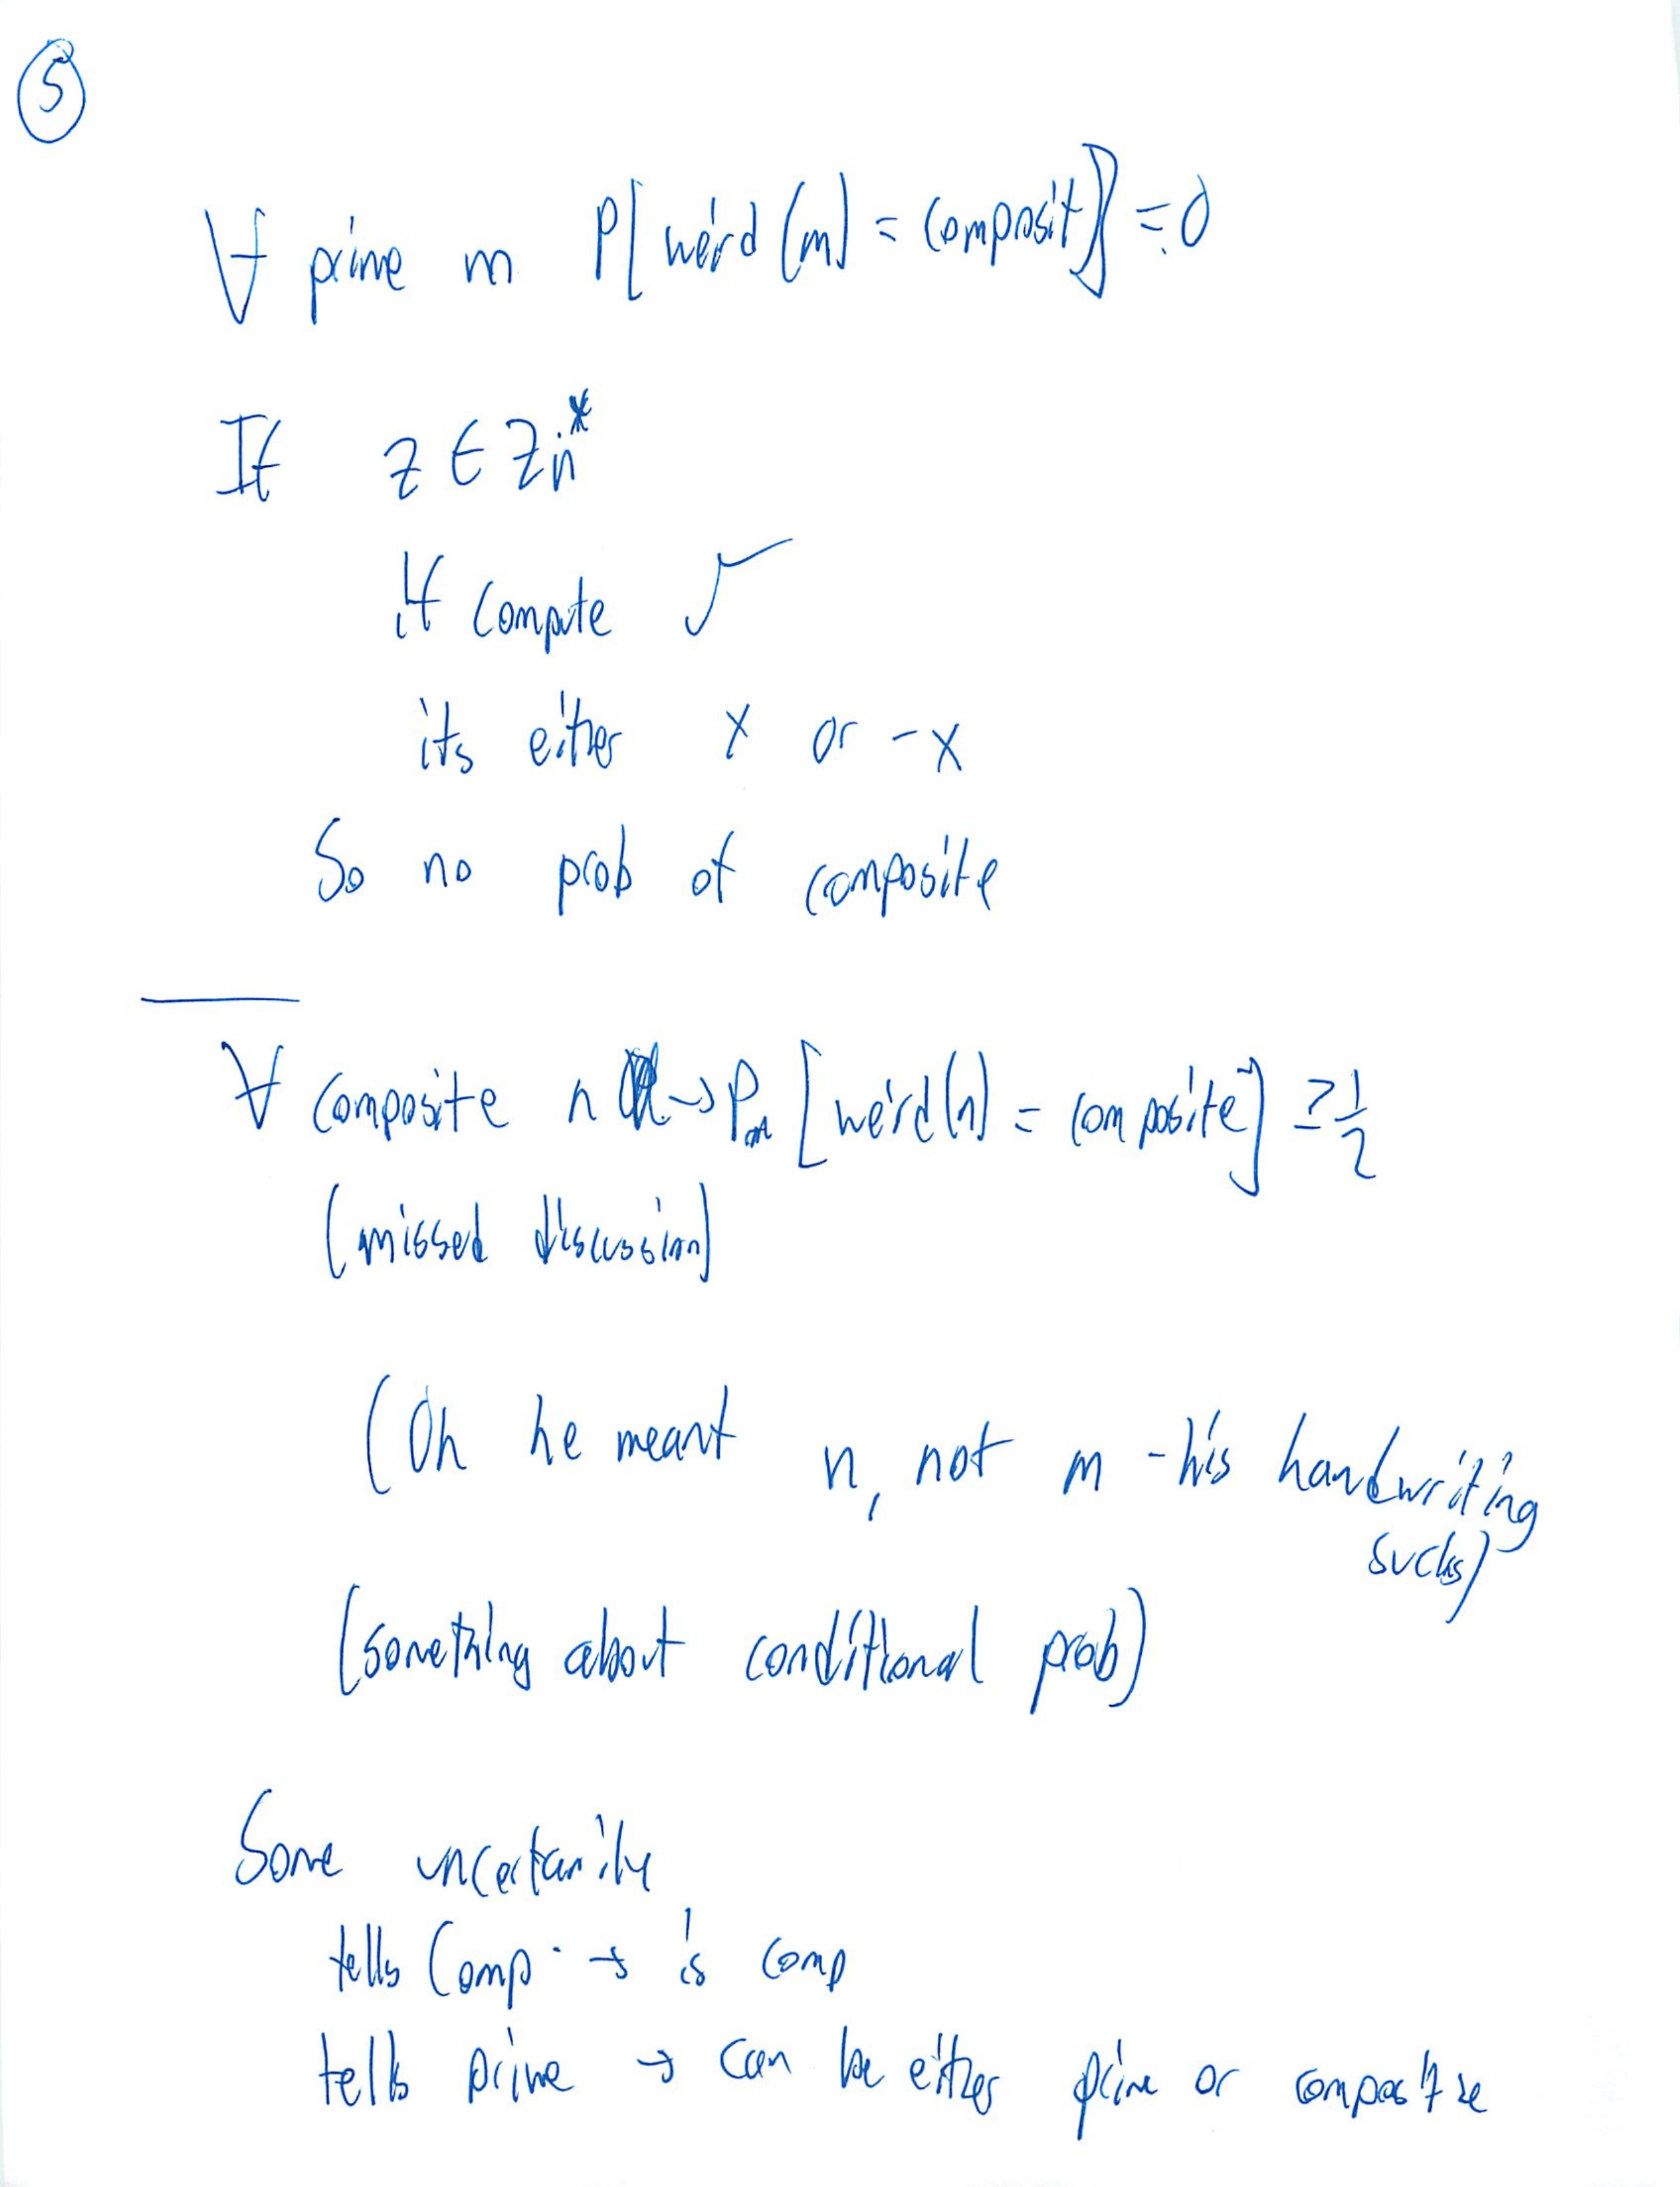 5
∀ prime m P[weird(m) = composit] = 0
If z ∈ Zn*
If compute √
its either x or -x
So no prob of composite
∀ composite n → P [weird(n) = composite] ≥ 1/2
(missed discussion)
(Oh he meant n, not m - his handwriting
sucks)
(something about conditional prob)
Some uncertanity
tells Comp. → is comp
tells prime → can be either prime or composite